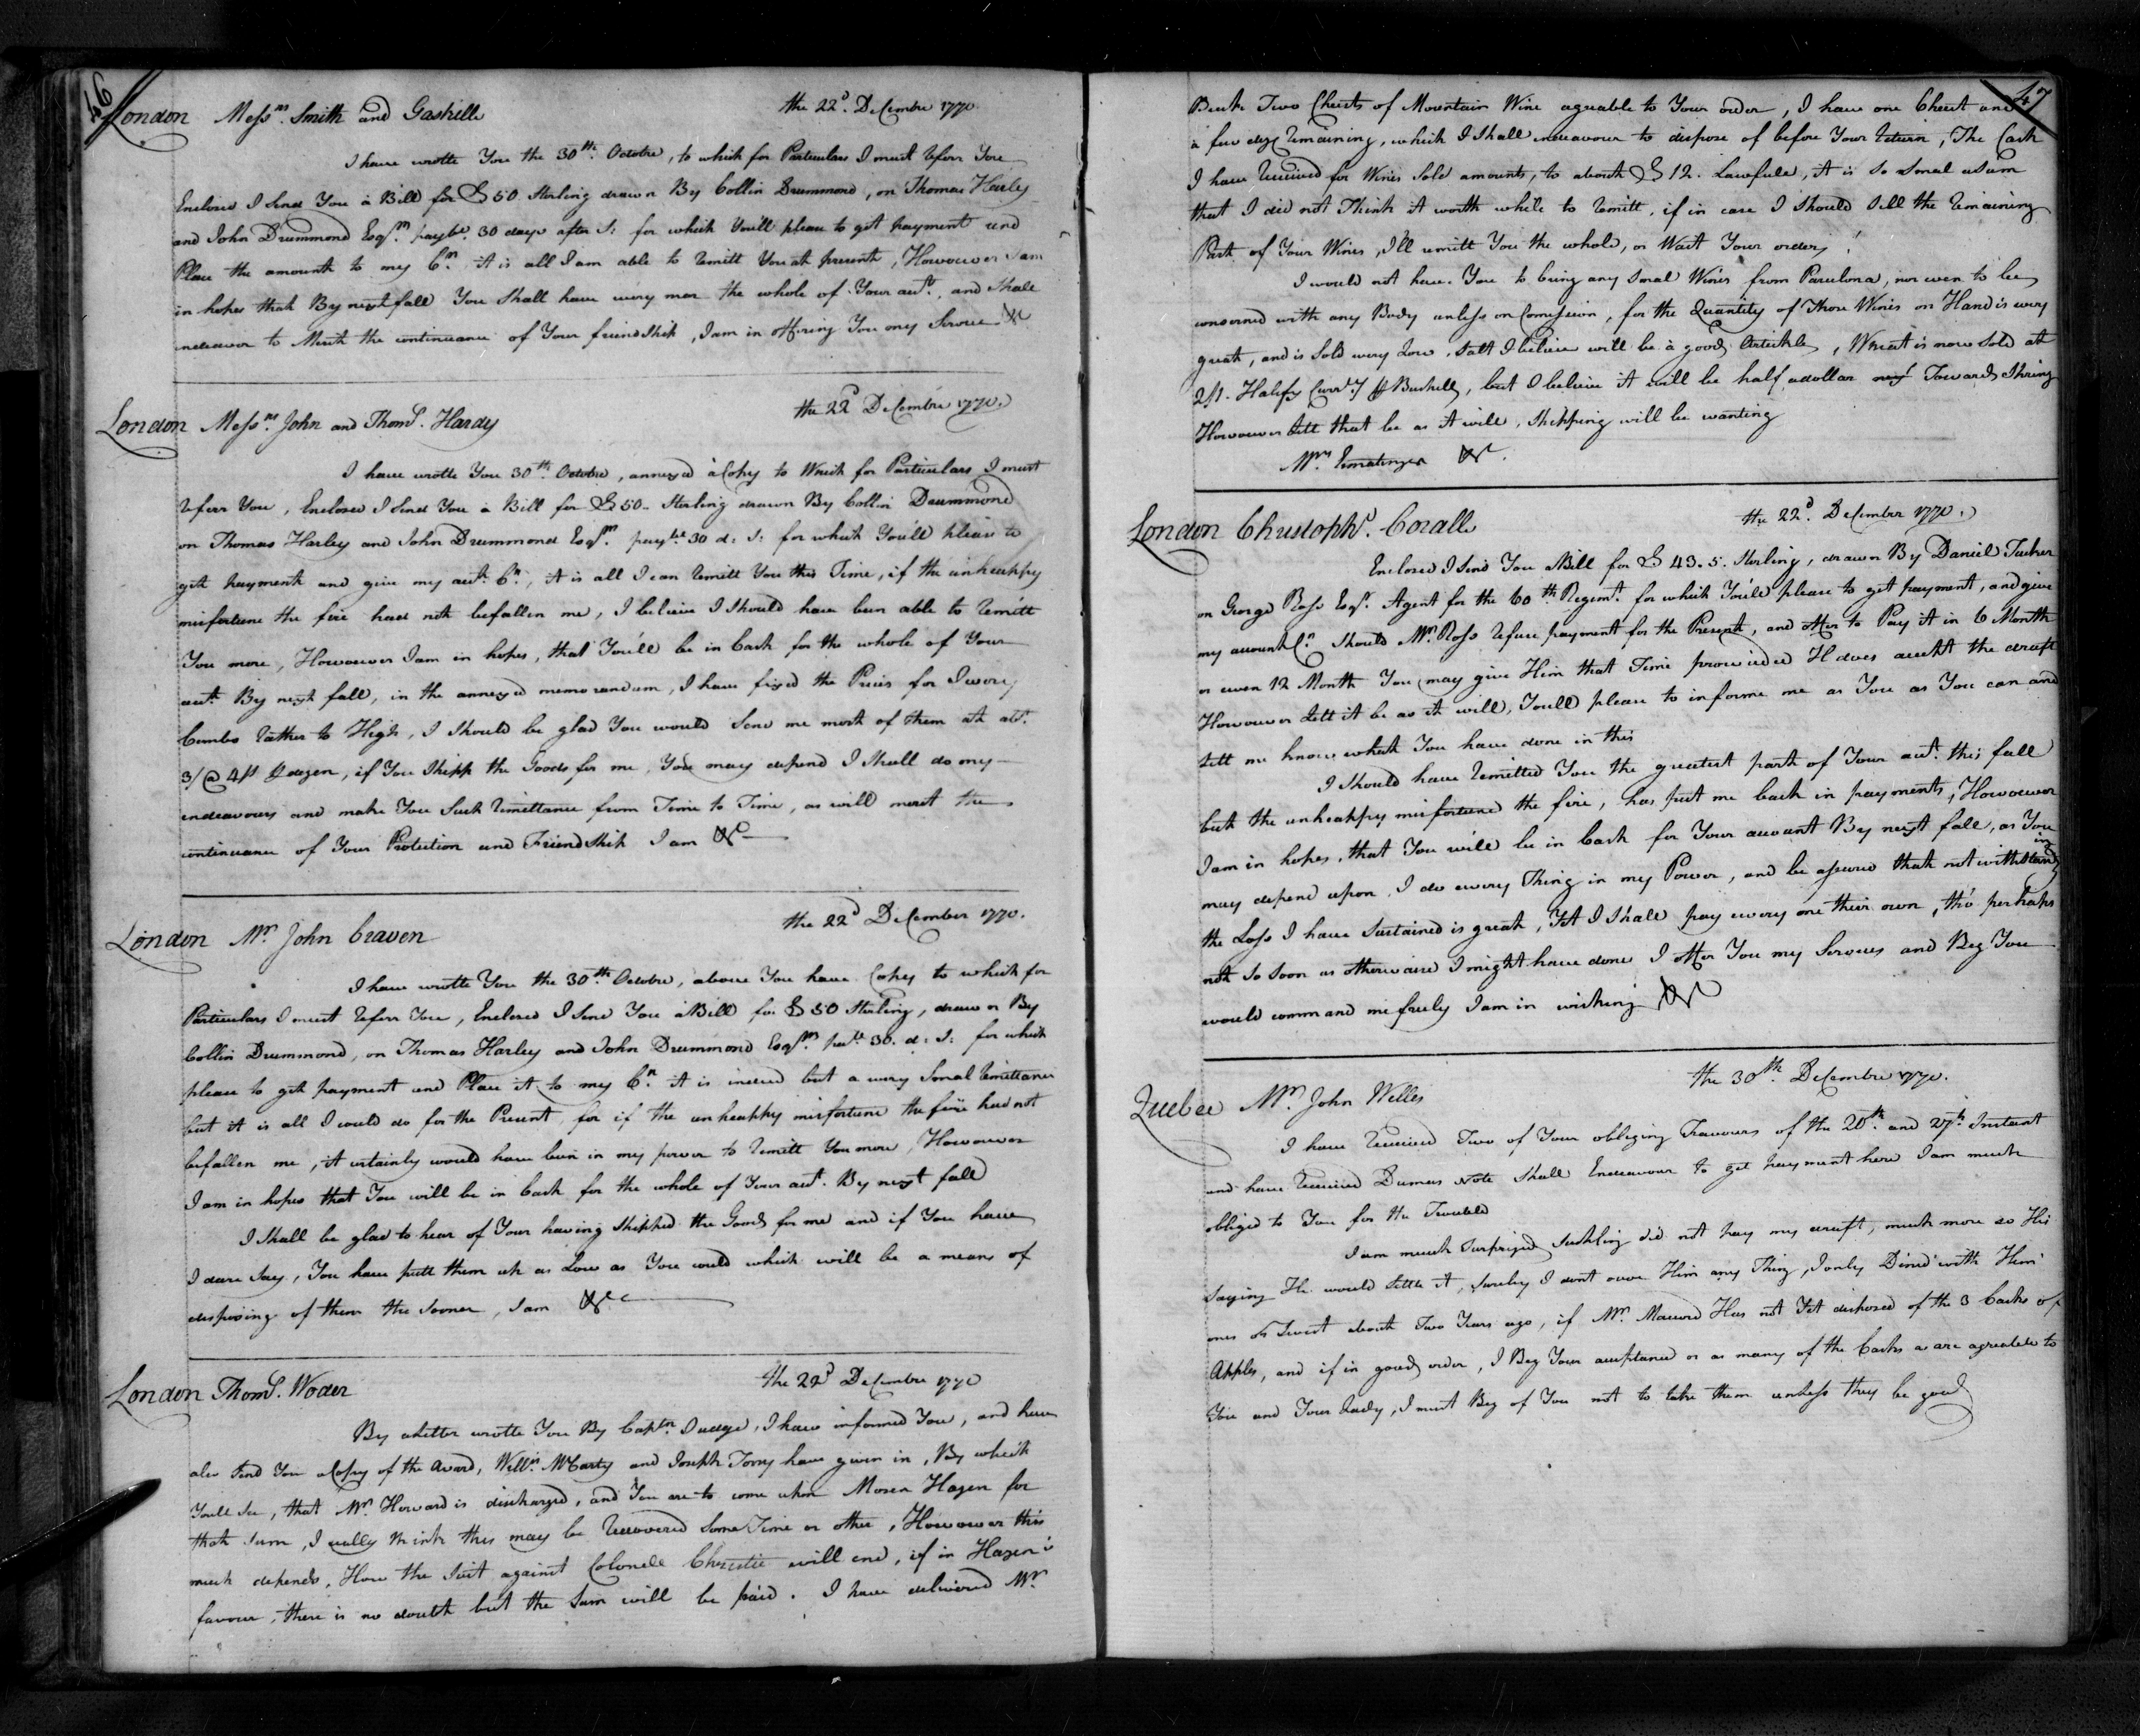 46
London Messrs. Smith and Gaskille the 22d. Decembre 1770.
I have wrotte You the 30th. Octobre, to which for Particulars I must referr You
Enclosed I Send You a Bill for £50 Sterling drawn By Collin Drummond, on Thomas Harley
and John Drummond Esqrs. paybe. 30 days after S: for which You'll please to get payment and
Place the amount to my Cr. it is all I am able to remitt You at present, Howouver I am
in hopes that By next fall You Shall have wery near the whole of Your acct., and Shall
endeavour to Merit the continuance of Your friendship, I am in offering You my Service &c
London Messrs. John and Thoms. Hardy the 22d Decembre 1770.
I have wrotte You 30th. Octobre, annexed a Copy to Which for Particulars I must
referr You, Enclosed I Send You a Bill for £50 - Sterling drawn By Collin Drummond
on Thomas Harley and John Drummond Esqrs. paybe 30 d: S: for which You'll please to
gett payment and give my acct. Cr., it is all I can remitt You this Time, if the unheappy
misfortune the fire had not befallen me, I believe I Should have been able to remitt
You more, Howouver I am in hopes, that You'll be in Cash for the whole of Your
acct. By next fall, in the annexed memorandum, I have fixed the Prices for Iwory
Combs rather to High, I Should be glad You would Send me most of them at abt.
3/ @ 4/s ⅌ dozen, if You Shipp the Goods for me, You may depend I Shall do my
endeavours and make You Such remittance from Time to Time, as will merit the
continuance of Your Protection and Friendship I am &c
London Mr. John Craven the 22d Decembre 1770.
I have wrotte You the 30th. Octobre, above You have Copy to which for
Particulars I must referr You, Enclosed I Send You a Bill for £50 Sterling, drawn By
Collin Drummond, on Thomas Harley and John Drummond Esqrs. pabe 30. d: S: for which
please to gett payment and Place it to my Cr. it is indeed but a wery Smal remittance
but it is all I could do for the Present, for if the unheappy misfortune the fire had not
befallen me, it certainly would have been in my power to remitt You more, Howouver
I am in hopes that You will be in Cash for the whole of Your acct. By next fall
I Shall be glad to hear of Your having Shipped the Goods for me and if You have
I dare Say, You have putt them up as Low as You could which will be a means of
disposing of them the Sooner, I am &c
London Thoms. Woder the 22d Decembre 1770
By a Letter wrotte You By Captn. Judge, I have informed You, and have
also Send You a Copy of the Award, Willm. McCarty and Joseph Torry have given in, By which
You'll See, that Mr. Howard is discharged, and You are to come upon Moses Hazen for
that Sum, I really think this may be recovered Some Time or other, Howouver this
much depends, How the Suit against Colonele Christie will end, if in Hazen's
favour, there is no doubt but the Sum will be paid. I have delivered Mr.
47
Beeck Two Chests of Mountain Wine agreable to Your order, I have one Chest and
a few doz remaining, which I Shall endeavour to dispose of before Your return, The Cash
I have received for Wines Sold amounts, to about £12. Lawfull, it is so Smal a Sum
that I did not Think it worth while to remitt, if in case I Should Sell the remaining
Part of Your Wines, I'll remitt You the whole, or Wait Your orders
I would not have You to bring any Smal Wines from Parcelona, nor even to be
conserned with any Body unless on Comission, for the Quantity of Those Wines on Hand is wery
great, and is Sold wery Low, Salt I believe will be a good Artickle, Wheat is now Sold at
2/1. Halifx Currcy ⅌ Bushell, but I believe it will be half a dollar Towards Spring
Howouver lett that be as it will, Shipping will be wanting
Mrs Ermatinger &c.
London Christophr. Coralle the 22d. December 1770.
Enclosed I Send You a Bill for £43.5. Sterling, drawn By Daniel Tucker
on George Ross Esqr. Agent for the 60th Regimt. for which You'll please to get payment, and give
my account Cr. Should Mr. Ross refuse payment for the Present, and offer to Pay it in 6 Month
or even 12 Month You may give Him that Time prowided H does accept the draft
Howouver lett it be as it will, You'll please to informe me as You as You can and
lett me know what You have done in this
I Should have remitted You the greatest part of Your acct. this fall
but the unheappy misfortune the fire, has putt me back in payments, Howouver
I am in hopes, that You will be in Cash for Your account By next fall, as You
may depend upon, I do every Thing in my Power, and be assured that not withstanding
the Loss I have Sustained is great, Yet I Shall pay every one their own, tho' perhaps
not So Soon as otherwaise I might have done I offer You my Services and Beg You
would command me freely I am in wishing &c
Quebec Mr. John Welles the 30th. Decembre 1770.
I have received Two of Your obliging Favours of the 20th. and 27th. Instant
and have received Dumas Note Shall Endeavour to get payment here I am much
obliged to You for the Trouble
I am much Surprized Suckling did not pay my draft, much more so His
Saying He would Settle it, Surely I dont owe Him any Thing, I only Dined with Him
ones or Twist about Two Years ago, if Mr. Mawerd Has not Yet disposed of the 3 Casks of
Apples, and if in good order, I Beg Your acceptance or as many of the Casks as are agreable to
You and Your Lady, I must Beg of You not to take them unless they be good